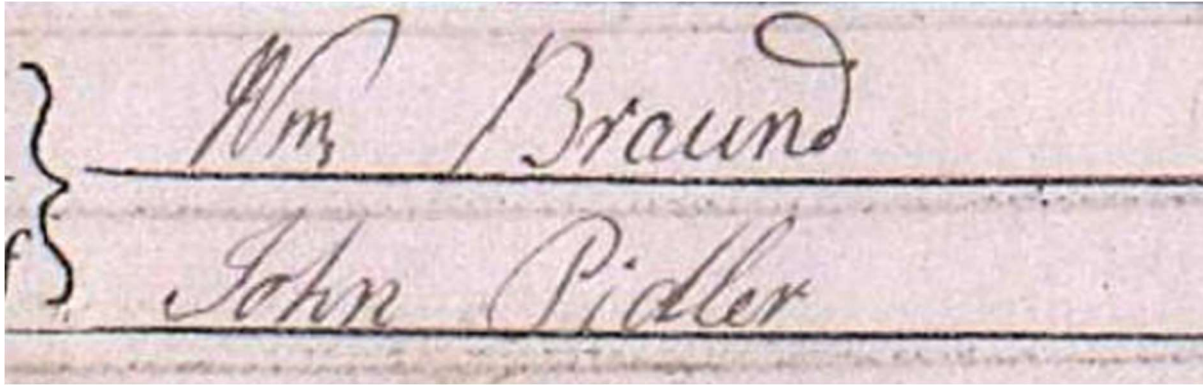 Wm Braund
John Pidler